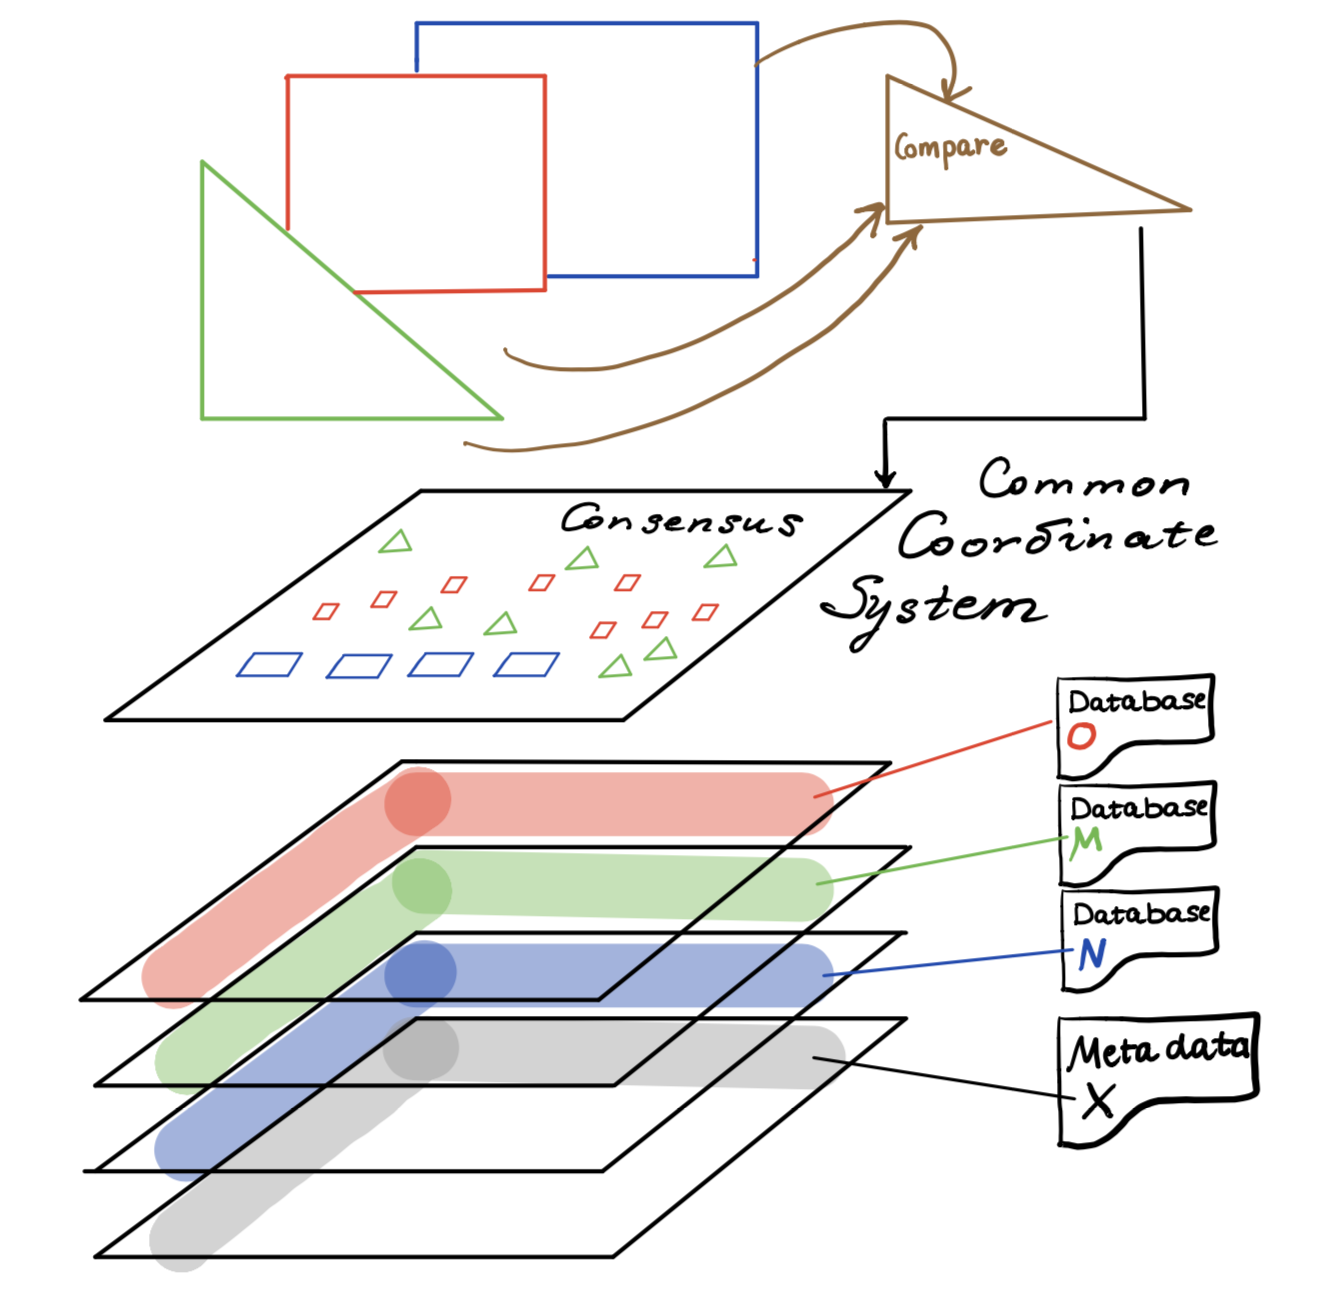 Compare
Consensus
Common
Coordinate
System
Database
O
Database
M
Database
N
Meta data
X